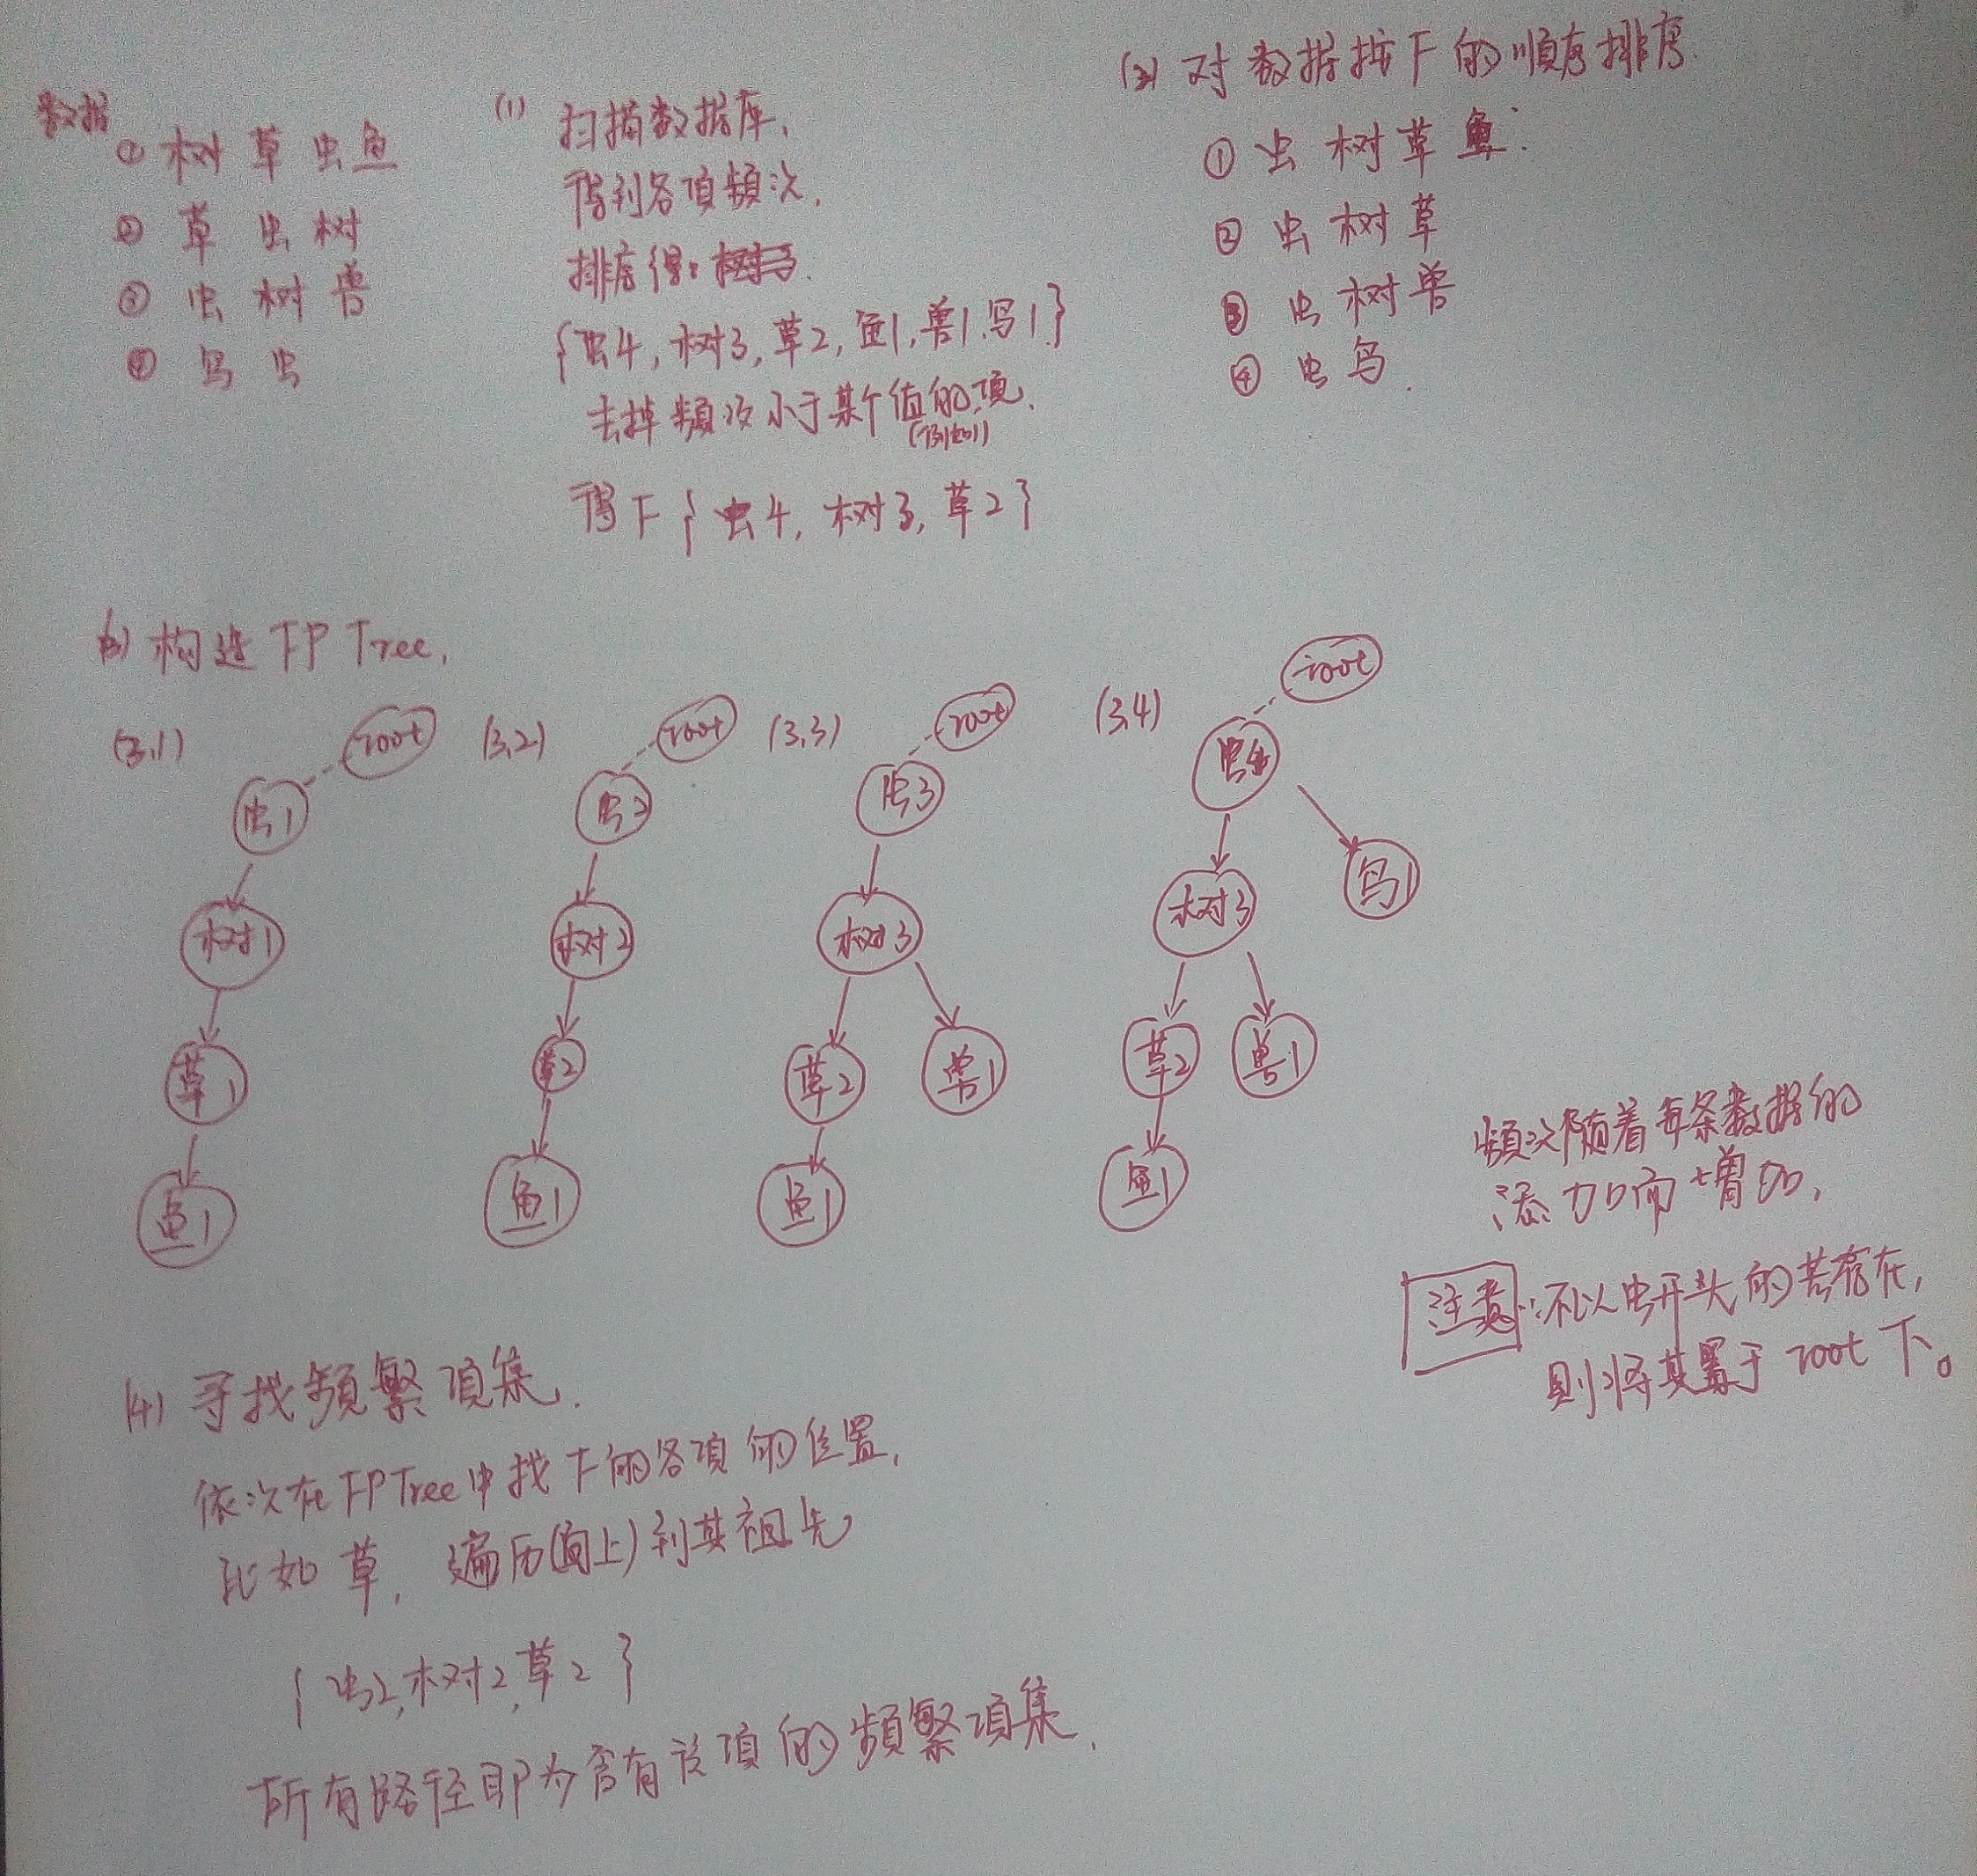 数据
① 树 草 虫 鱼
② 草 虫 树
③ 虫 树 兽
④ 鸟 虫
(1) 扫描数据库,
得到各项频次,
排序得:
{虫4, 树3, 草2, 鱼1, 兽1, 鸟1}
去掉频次小于某个值的项.
(例如1)
得F{虫4, 树3, 草2}
(2) 对数据按F的顺序排序.
① 虫 树 草 鱼.
② 虫 树 草
③ 虫 树 兽
④ 虫 鸟.
(3) 构造 FP Tree,
(3,1) root
虫1
树1
草1
鱼1
(3,2) root
虫2
树2
草2
鱼1
(3,3) root
虫3
树3
草2 兽1
鱼1
(3,4) root
虫4
树3 鸟1
草2 兽1
鱼1
频次随着每条数据的
添加而增加,
注意:不以虫开头的若存在,
则将其置于 root 下。
(4) 寻找频繁项集.
依次在FPTree中找F的各项的位置,
比如 草, 遍历(向上)到其祖先
{虫2,树2,草2}
所有路径即为含有该项的频繁项集.